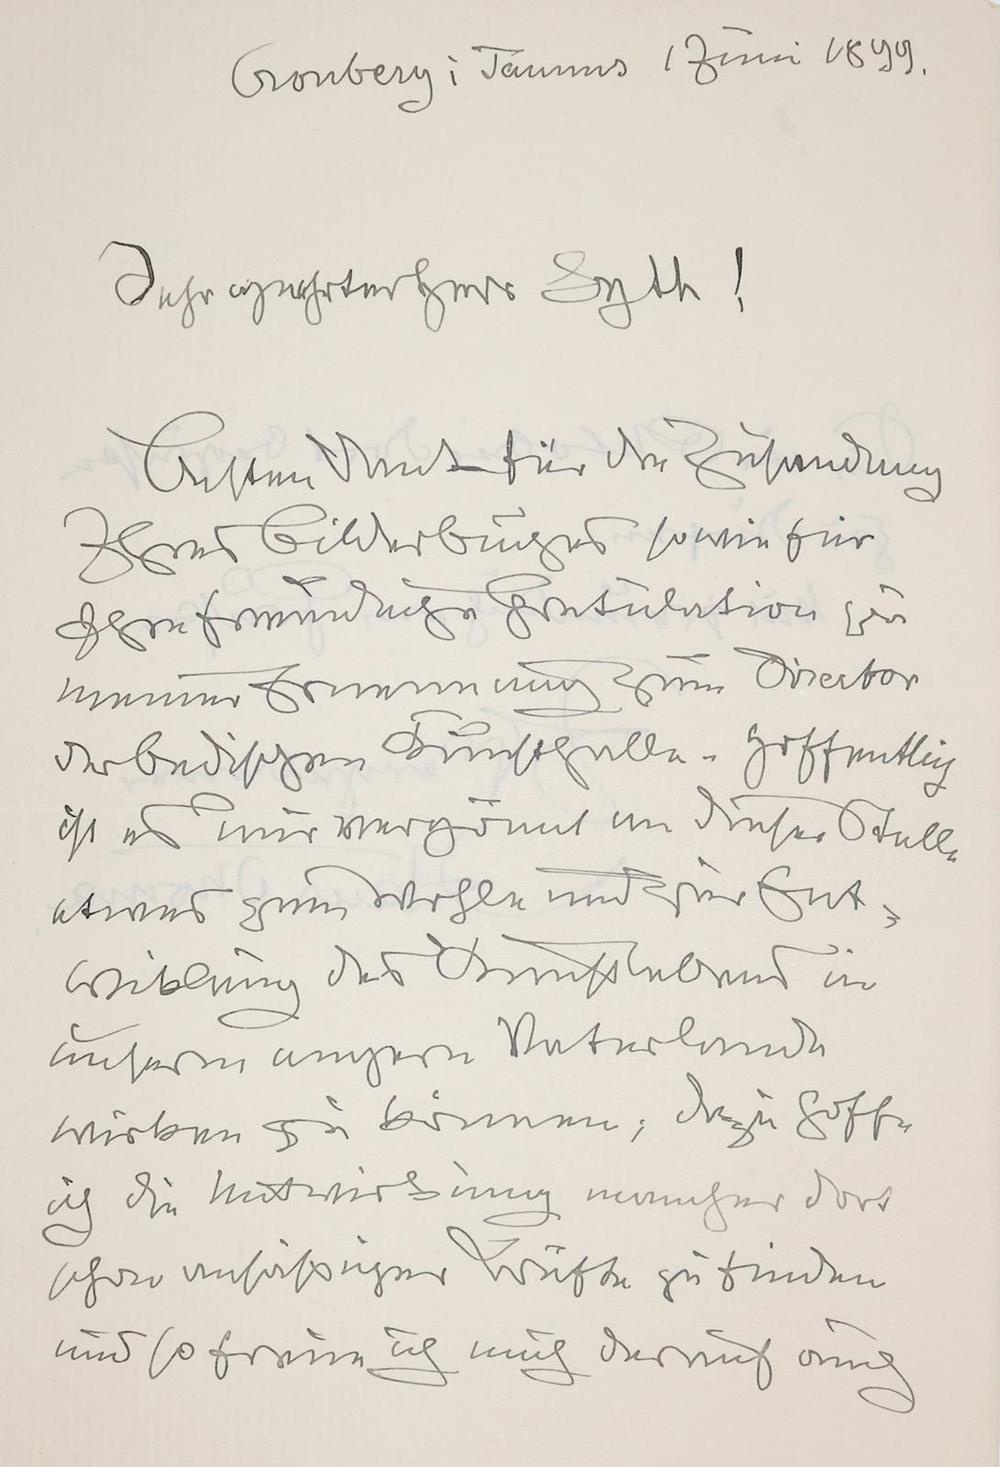 Cronberg i Taunus 1 Juni 1899.
Sehr geehrter Herr Eyth!
Besten Dank für die Zusendung
Ihres Bilderbuches sowie für
Ihre freundliche Gratulation zu
meiner Ernennung zum Director
der badischen Kunsthalle. Hoffentlich
ist es mir vergönnt an dieser Stelle
etwas zum Wohle und zur Ent-
wicklung des Kunstlebens in
unserm engern Vaterlande
wirken zu können; dazu hoffe
ich die Mitwirkung mancher dort
schon ansässiger Kräfte zu finden
und so freue ich mich darauf auch